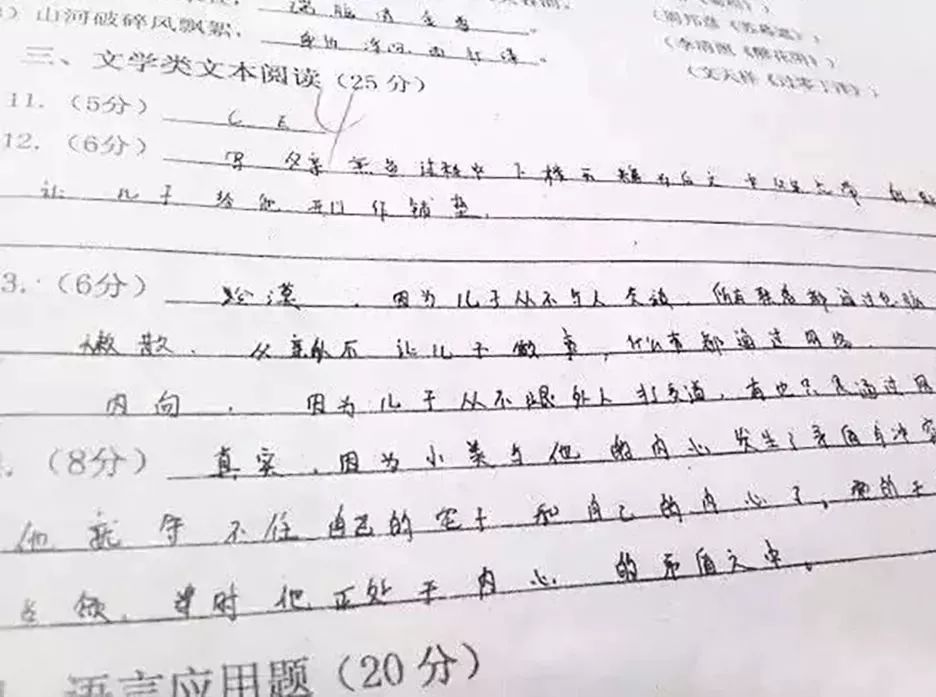 瑞脑消金兽。
(周邦彦《苏幕遮》)
）山河破碎风飘絮，身世浮沉雨打萍。
(李清照《醉花阴》)
三、文学类文本阅读（25分）
(文天祥《过零丁洋》)
11.（5分）C E
12.（6分）写父亲
让儿子给他开门作铺垫.
3.（6分）因为儿子从不与人交谈.所有联系都通过电脑
懒散.父亲从不让儿子做事,什么事都通过网络.
内向.因为儿子从不跟外人打交道,有也只是通过网
（8分）真实.因为小美与他的内心发生了矛盾与冲突
他就守不住自己的 和自己的内心了,
当时他正处于内心的矛盾之中。
语言应用题（20分）